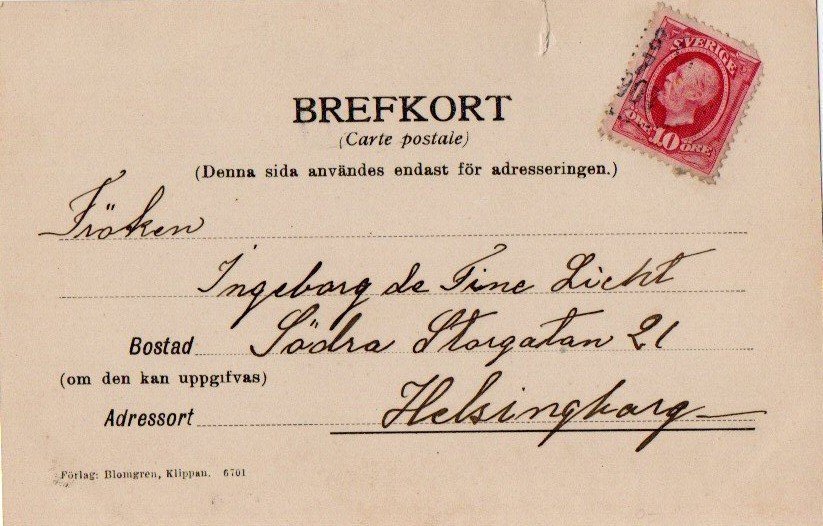 SVERIGE
ÖRE 10 ÖRE
BREFKORT
(Carte postale)
(Denna sida användes endast för adresseringen.)
Fröken
Ingeborg de Fine Licht
Bostad Södra Storgatan 21
(om den kan uppgifvas)
Adressort Helsingborg
Förlag: Blomgren, Klippan. 6701